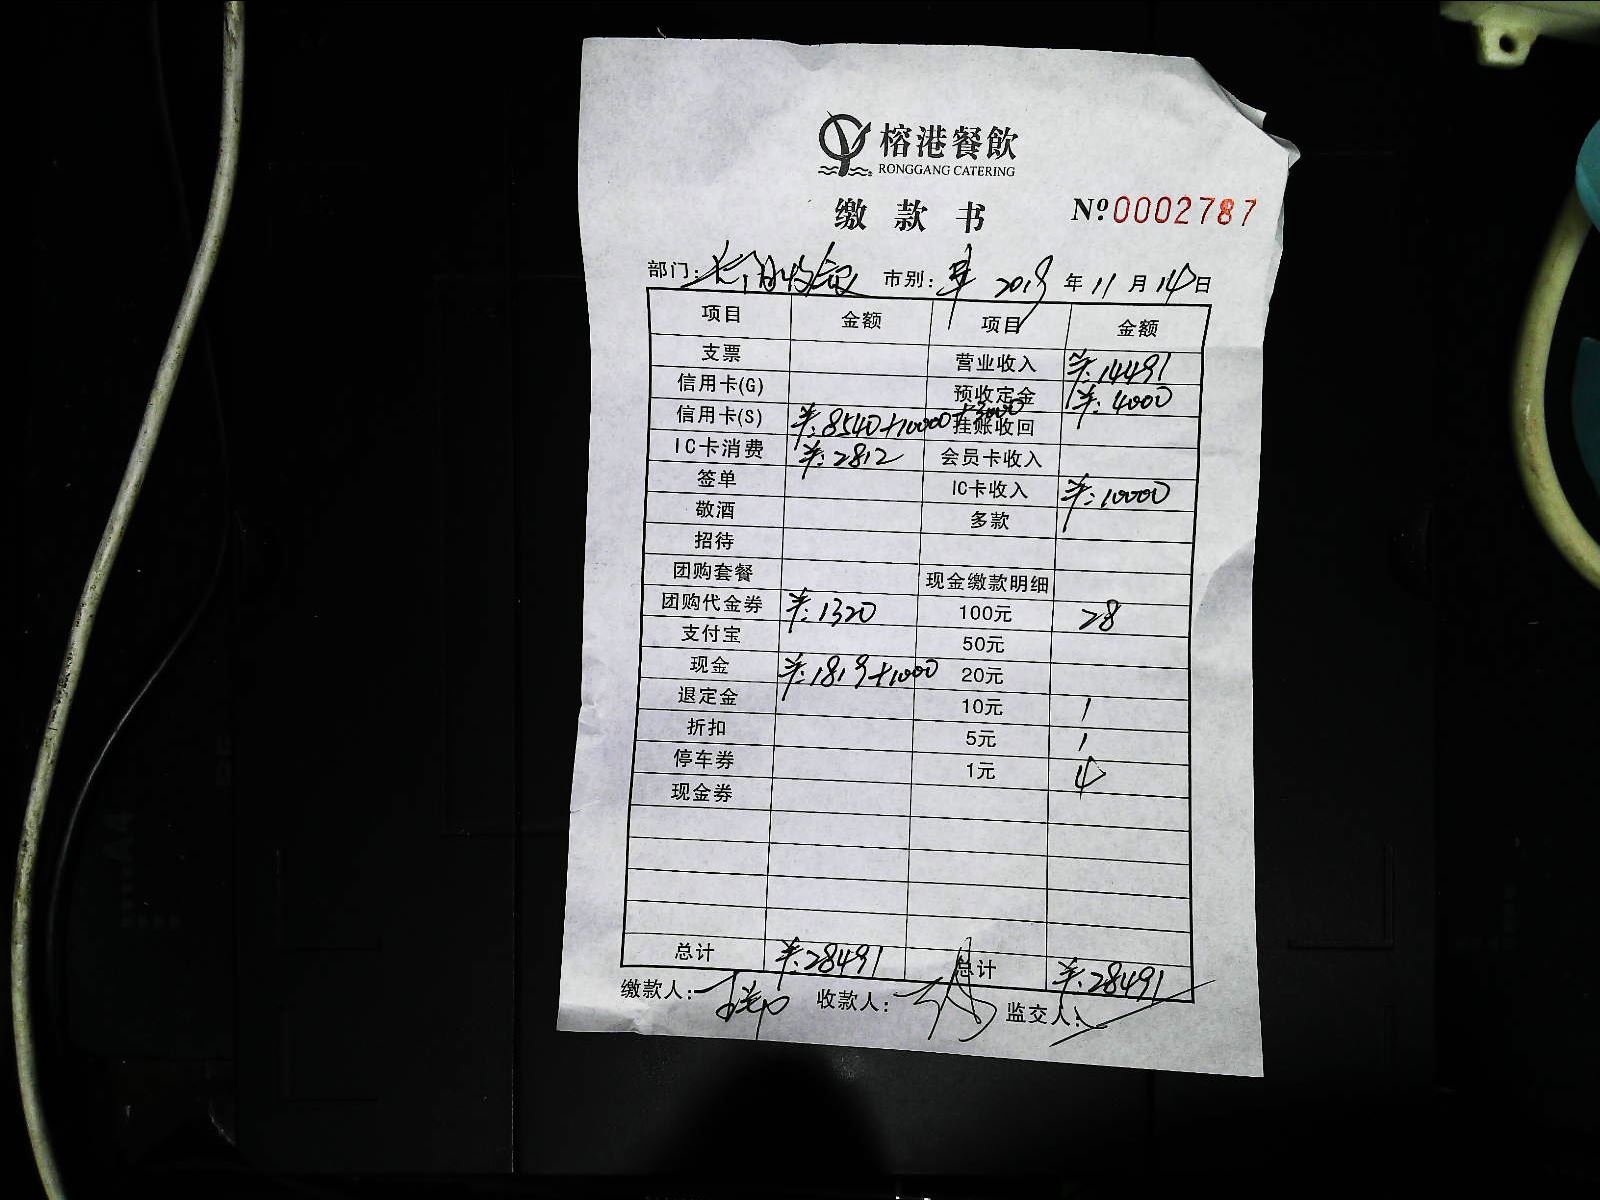 榕港餐飲
RONGGANG CATERING
缴款书 Nº0002787
部门: 市别: 2019年11月14日
项目 金额 项目 金额
支票 营业收入 ¥:14491
信用卡(G) 预收定金 ¥:4000
信用卡(S) ¥:8540+10000+3000 挂账收回
IC卡消费 ¥:2812 会员卡收入
签单 IC卡收入 ¥:10000
敬酒 多款
招待
团购套餐 现金缴款明细
团购代金券 ¥:1320 100元 28
支付宝 50元
现金 ¥:1819+1000 20元
退定金 10元 1
折扣 5元 1
停车券 1元 4
现金券
总计 ¥:28491 总计 ¥:28491
缴款人: 收款人: 监交人: